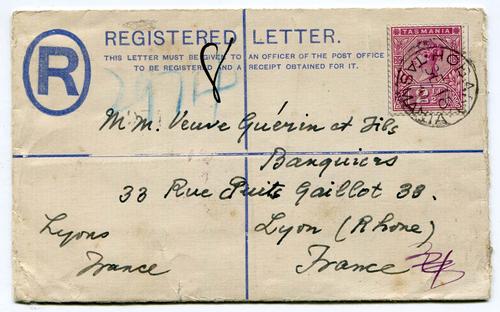 REGISTERED LETTER.
THIS LETTER MUST BE GIVEN TO AN OFFICER OF THE POST OFFICE
TO BE REGISTERED AND A RECEIPT OBTAINED FOR IT.
R
8
TASMANIA
M.M. Veuve Guérin et Fils
Banquiers
33 Rue Puits Gaillot 33.
Lyon (Rhone)
France
Lyons
France